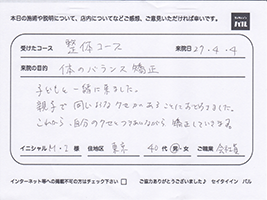 本日の施術や説明について、店内についてなどご感想、ご意見いただければ幸いです。
パル
受けたコース 整体コース 来院日 27.4.4
来院の目的 体のバランス矯正
子どもと一緒に来ました。
親子で同じようなクセがあることにおどろきました。
これから、自分のクセとつきあいながら矯正していきます
イニシャル M・I 様 住地区 東京 40代 男・女 ご職業 会社員
インターネット等への掲載不可の方はチェック下さい □ ご協力ありがとうございました♪ セイタイイン パル